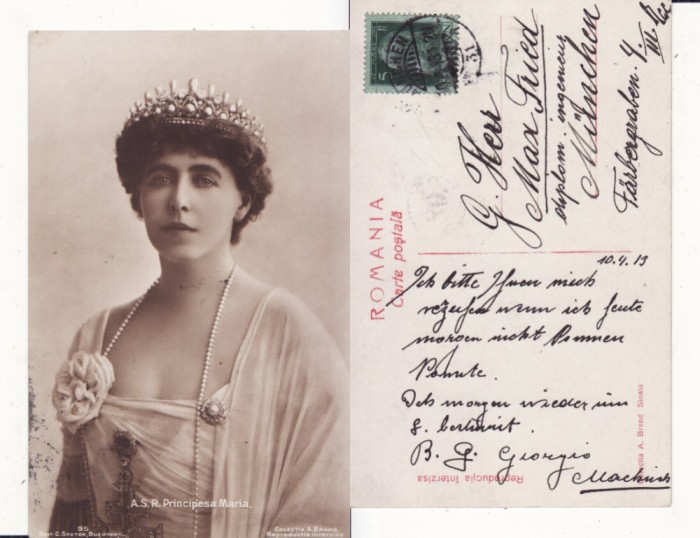 A.S.R. Principesa Maria.
95
Edit. C. Sfetea, Bucuresti.
Colectia A. Brand.
Reproductia interzisa
5
G. Herr
Max Fried
diplom. ingenieur
München
Färbergraben 4
III. St.
ROMANIA
Carte poştală
10.4.13
Ich bitte Ihnen mich
wenn ich heute
morgen nicht kommen
konnte.
Ich morgen wieder um
8. bestimmt.
B. G. Giorgio
Colectia A. Brand Sinaia
Reproducţia interzisa